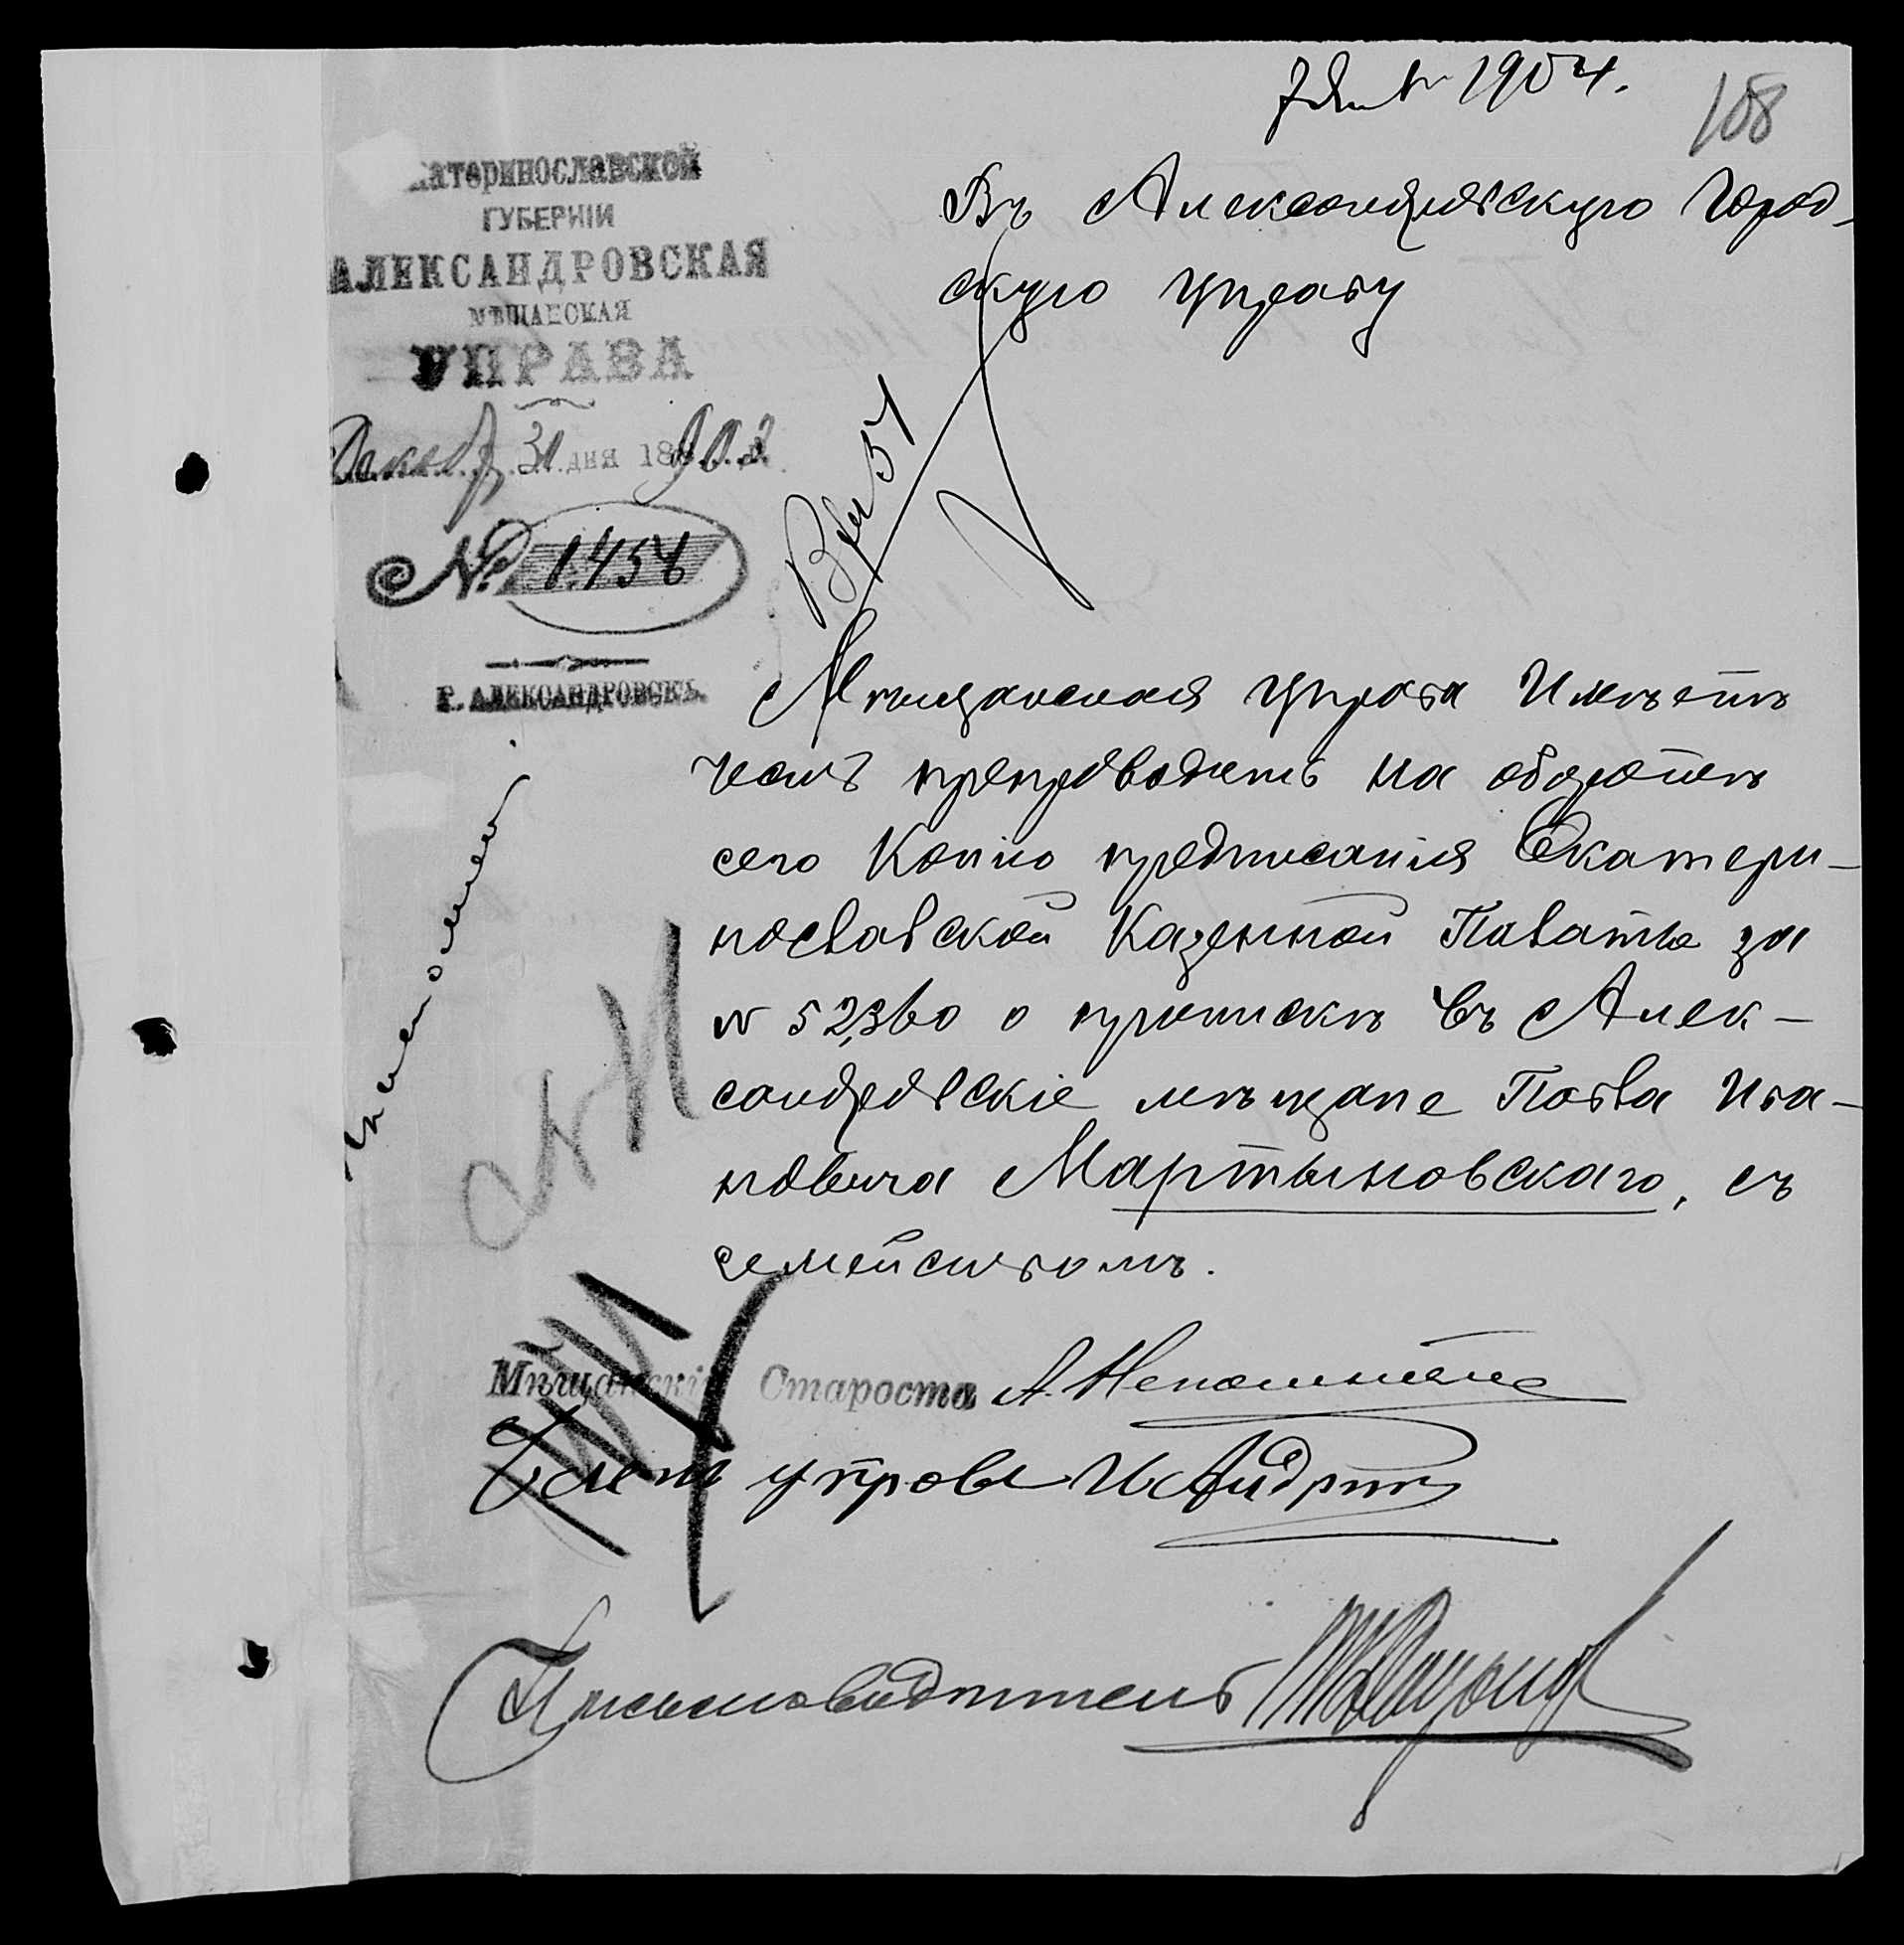 7 Янв 1904.
108
Екатеринославской
ГУБЕРНІИ
АЛЕКСАНДРОВСКАЯ
МѢЩАНСКАЯ
УПРАВА
Декаб. 31 дня 1903
№ 1456
Г. АЛЕКСАНДРОВСКЪ
Въ Александровскую Город-
скую управу
Мѣщанская управа Имѣетъ
честь препроводить на оборотѣ
сего Копію предписанія Екатери-
нославской Казенной Палаты за
№ 52360 о припискѣ въ Алек-
сандровскіе мѣщане Павла Ива-
новича Мартыновскаго, съ
семействомъ.
Мѣщанскій Староста А.
Членъ управы
Письмоводитель